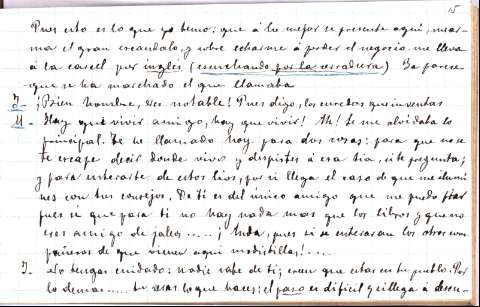 15
Pues esto es lo que yo temo; que á lo mejor se presente aquí, me ar-
ma el gran escandalo, y sobre echarme á perder el negocio me lleva
á la carcel por inglés (escuchando por la cerradura) Ya parece
que se ha marchado el que llamaba
J- ¡Buen hombre, eres notable! Pues digo, los enredos que inventas
M- Hay que vivir amigo, hay que vivir! Ah! se me olvidaba lo
principal. Te he llamado hoy para dos cosas: para que no se
te escape decir donde vivo y despistes á esa tia, si te pregunta;
y para enterarte de estos lios, por si llega el caso de que me ilumi
nes con tus consejos. De ti es del único amigo que me puedo fiar
pues sé que para ti no hay nada mas que los libros y que no
eres amigo de jaleos.....¡ Anda, pues si se enteraran los otros com
pañeros de que vienen aqui modistillas!....
J- No tengas cuidado: nadie sabe de ti; creen que estas en tu pueblo. Por
lo demas.... tu veras lo que haces; el paso es dificil y si llega á descu-